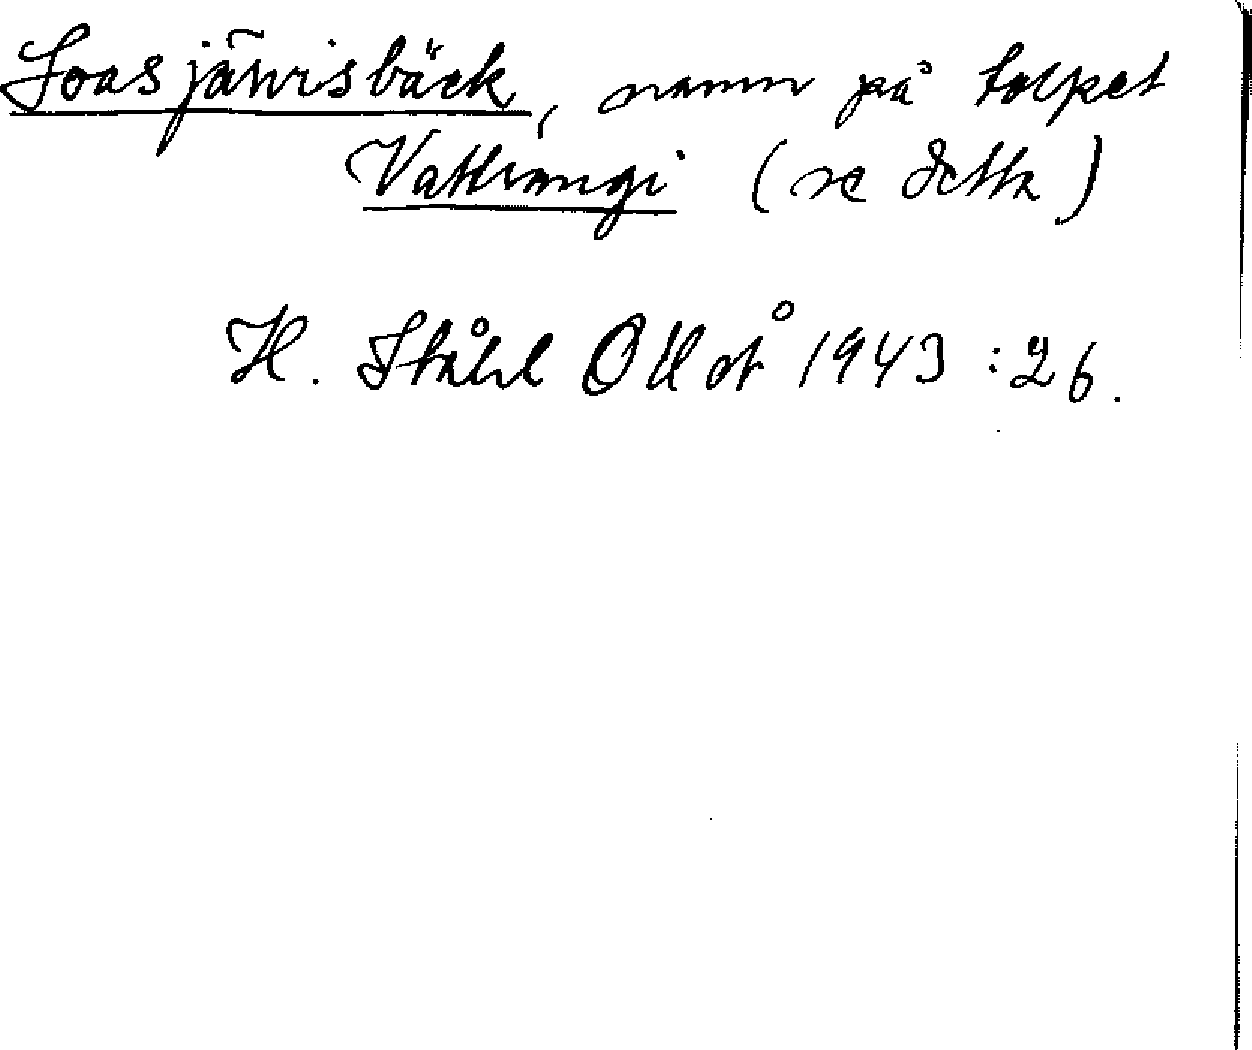 Soasjärvisbäck, namn på torpet
Vattrangi (se detta)
H. Ståhl ÖUoÅ 1943 : 26.